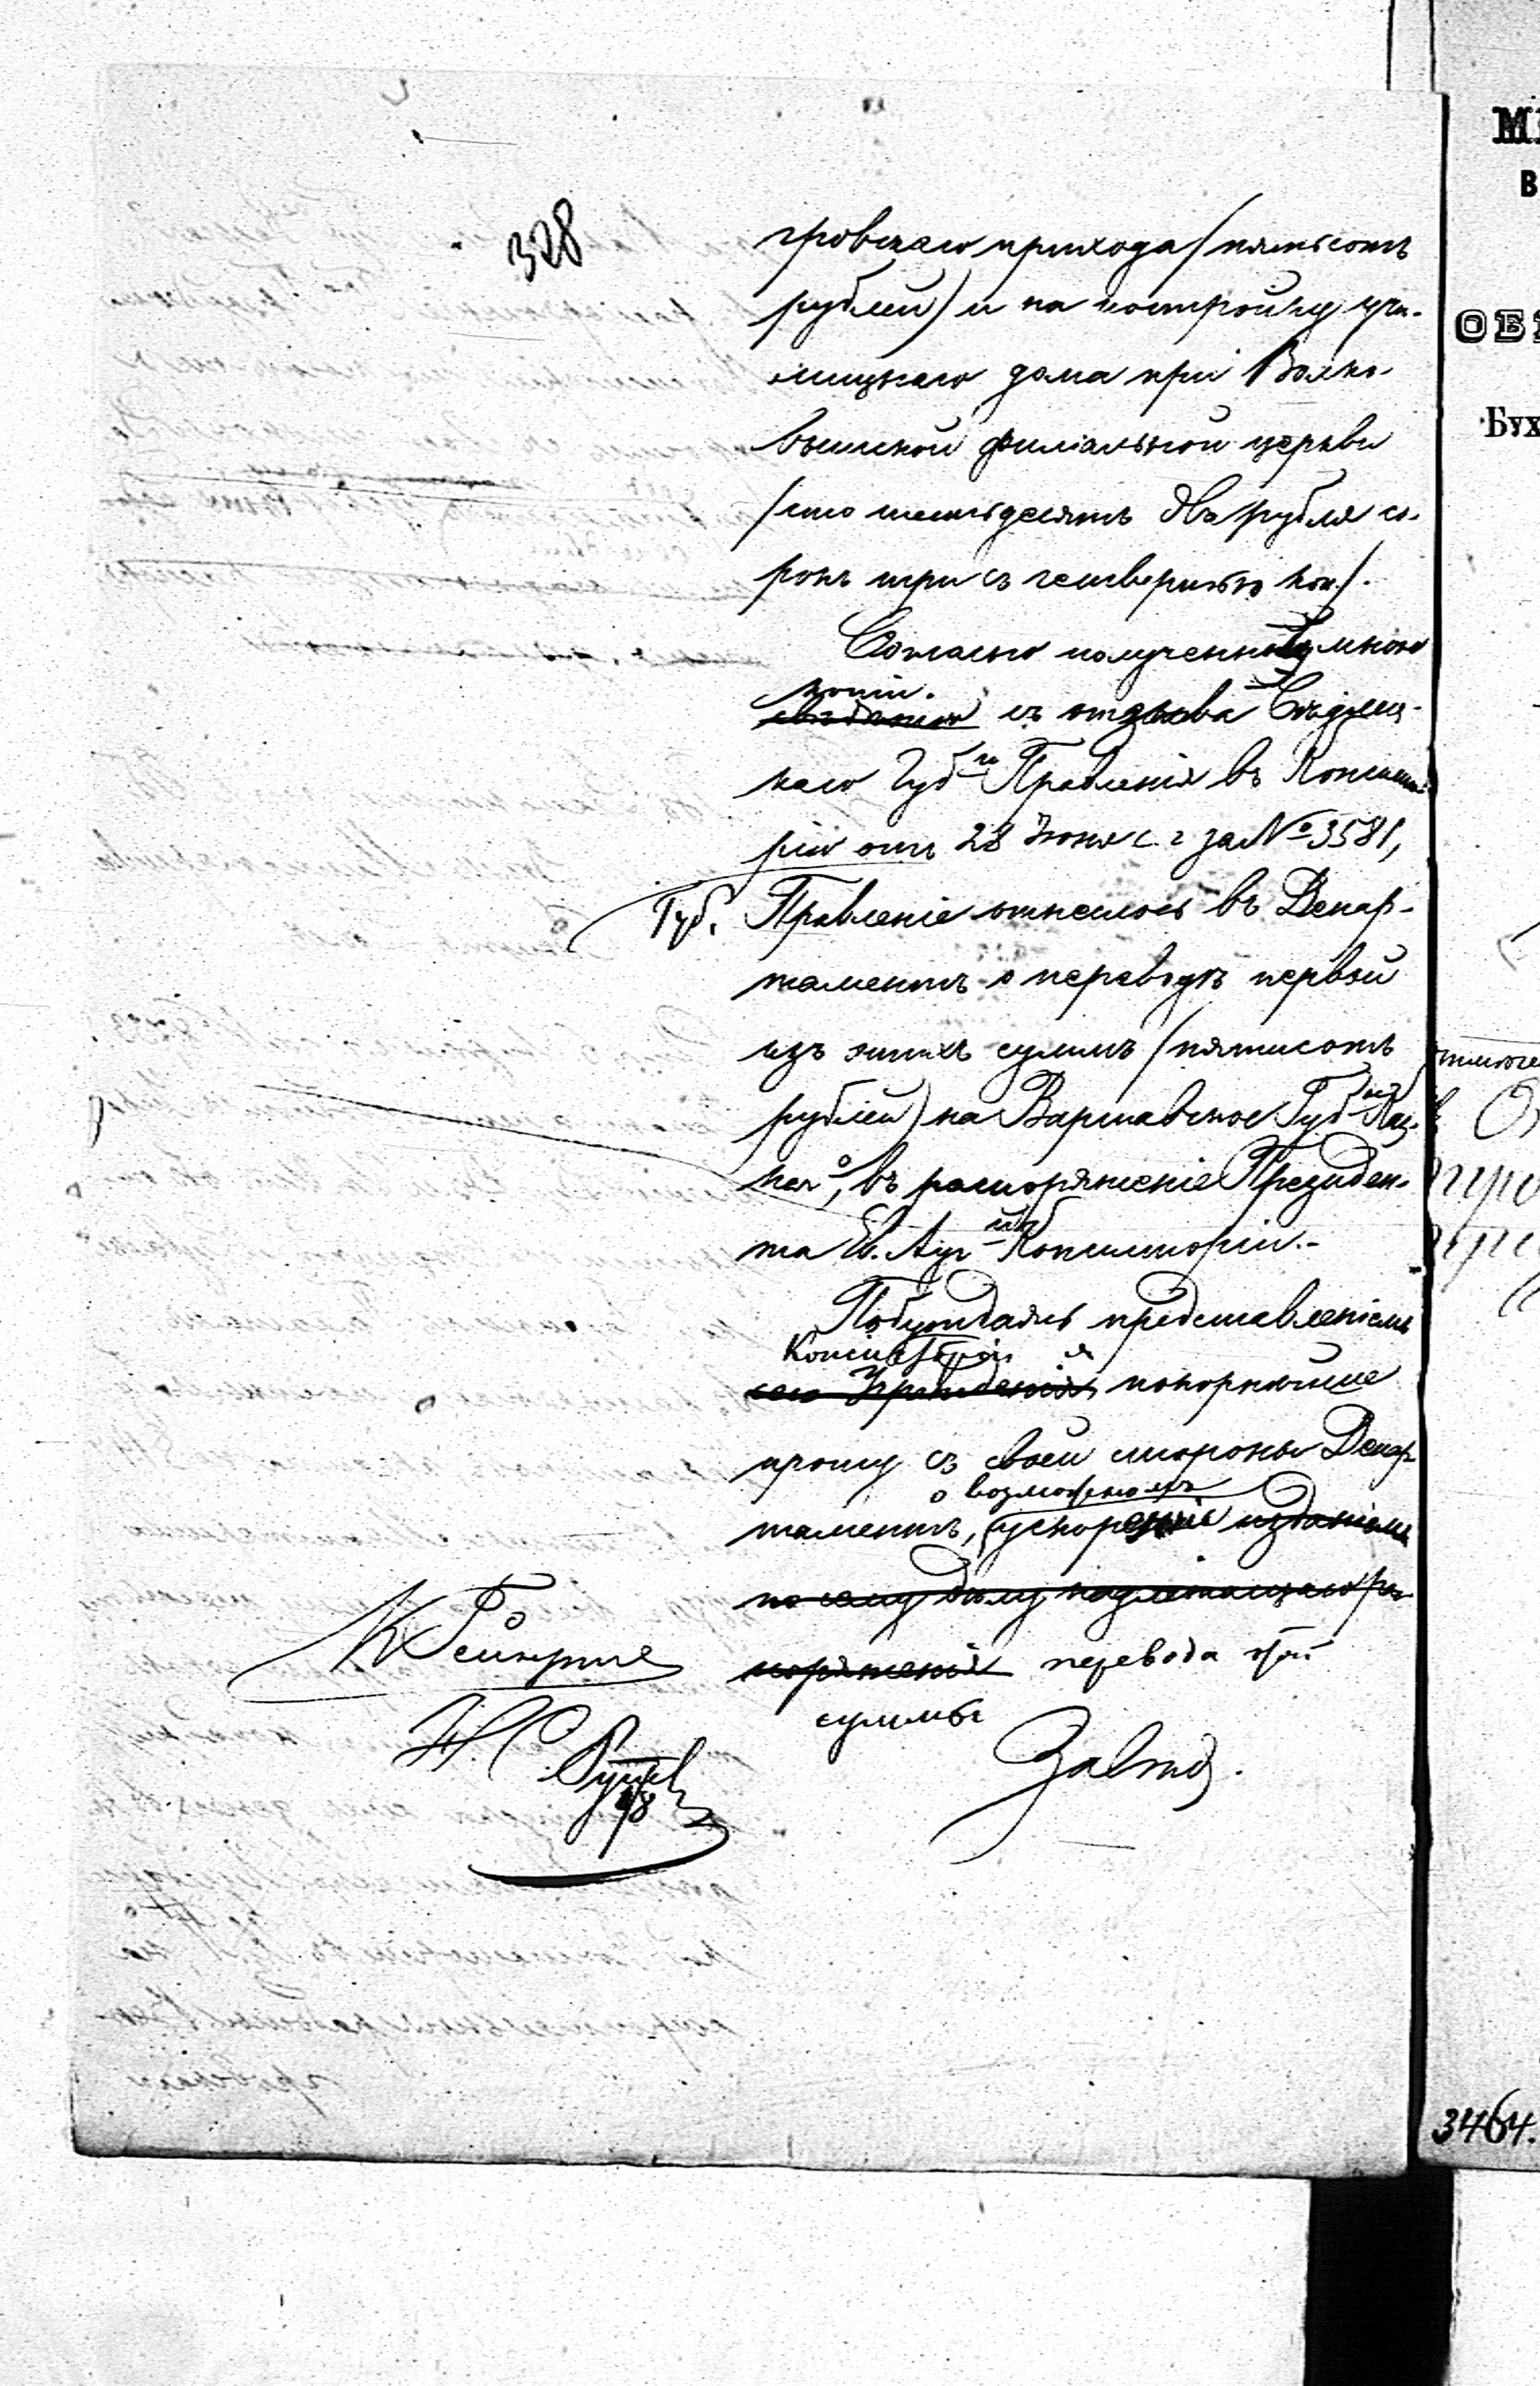 328
гровскаго прихода (пятьсотъ
рублей) и на постройку учи-
лищнаго дома при Волко-
вышской филіальной церкви
(сто шестьдесятъ два рубля со-
рокъ три съ четвертью коп.).
Согласно полученной мною
копіи
свѣдѣнію съ отзыва Сѣдлец-
каго Губ. Правленія въ Консисто-
рію отъ 28 Іюня с. г. за № 3581,
Губ. Правленіе отнеслось въ Депар-
таментъ о переводѣ первой
изъ этихъ суммъ (пятисотъ
рублей) на Варшавское Губ. Каз-
нач°, въ распоряженіе Президен-
та Ев. Ауг. Консисторіи.-
Побуждаясь представленіемъ
Консисторіи я
сего Учрежденія покорнѣйше
прошу съ своей стороны Депар-
о возможномъ
таментъ, ускореніи изданіемъ
по сему дѣлу надлежащаго рас-
поряженія перевода этой
суммы
Завѣд.
МИ
В
ОБ
Бух
3464.